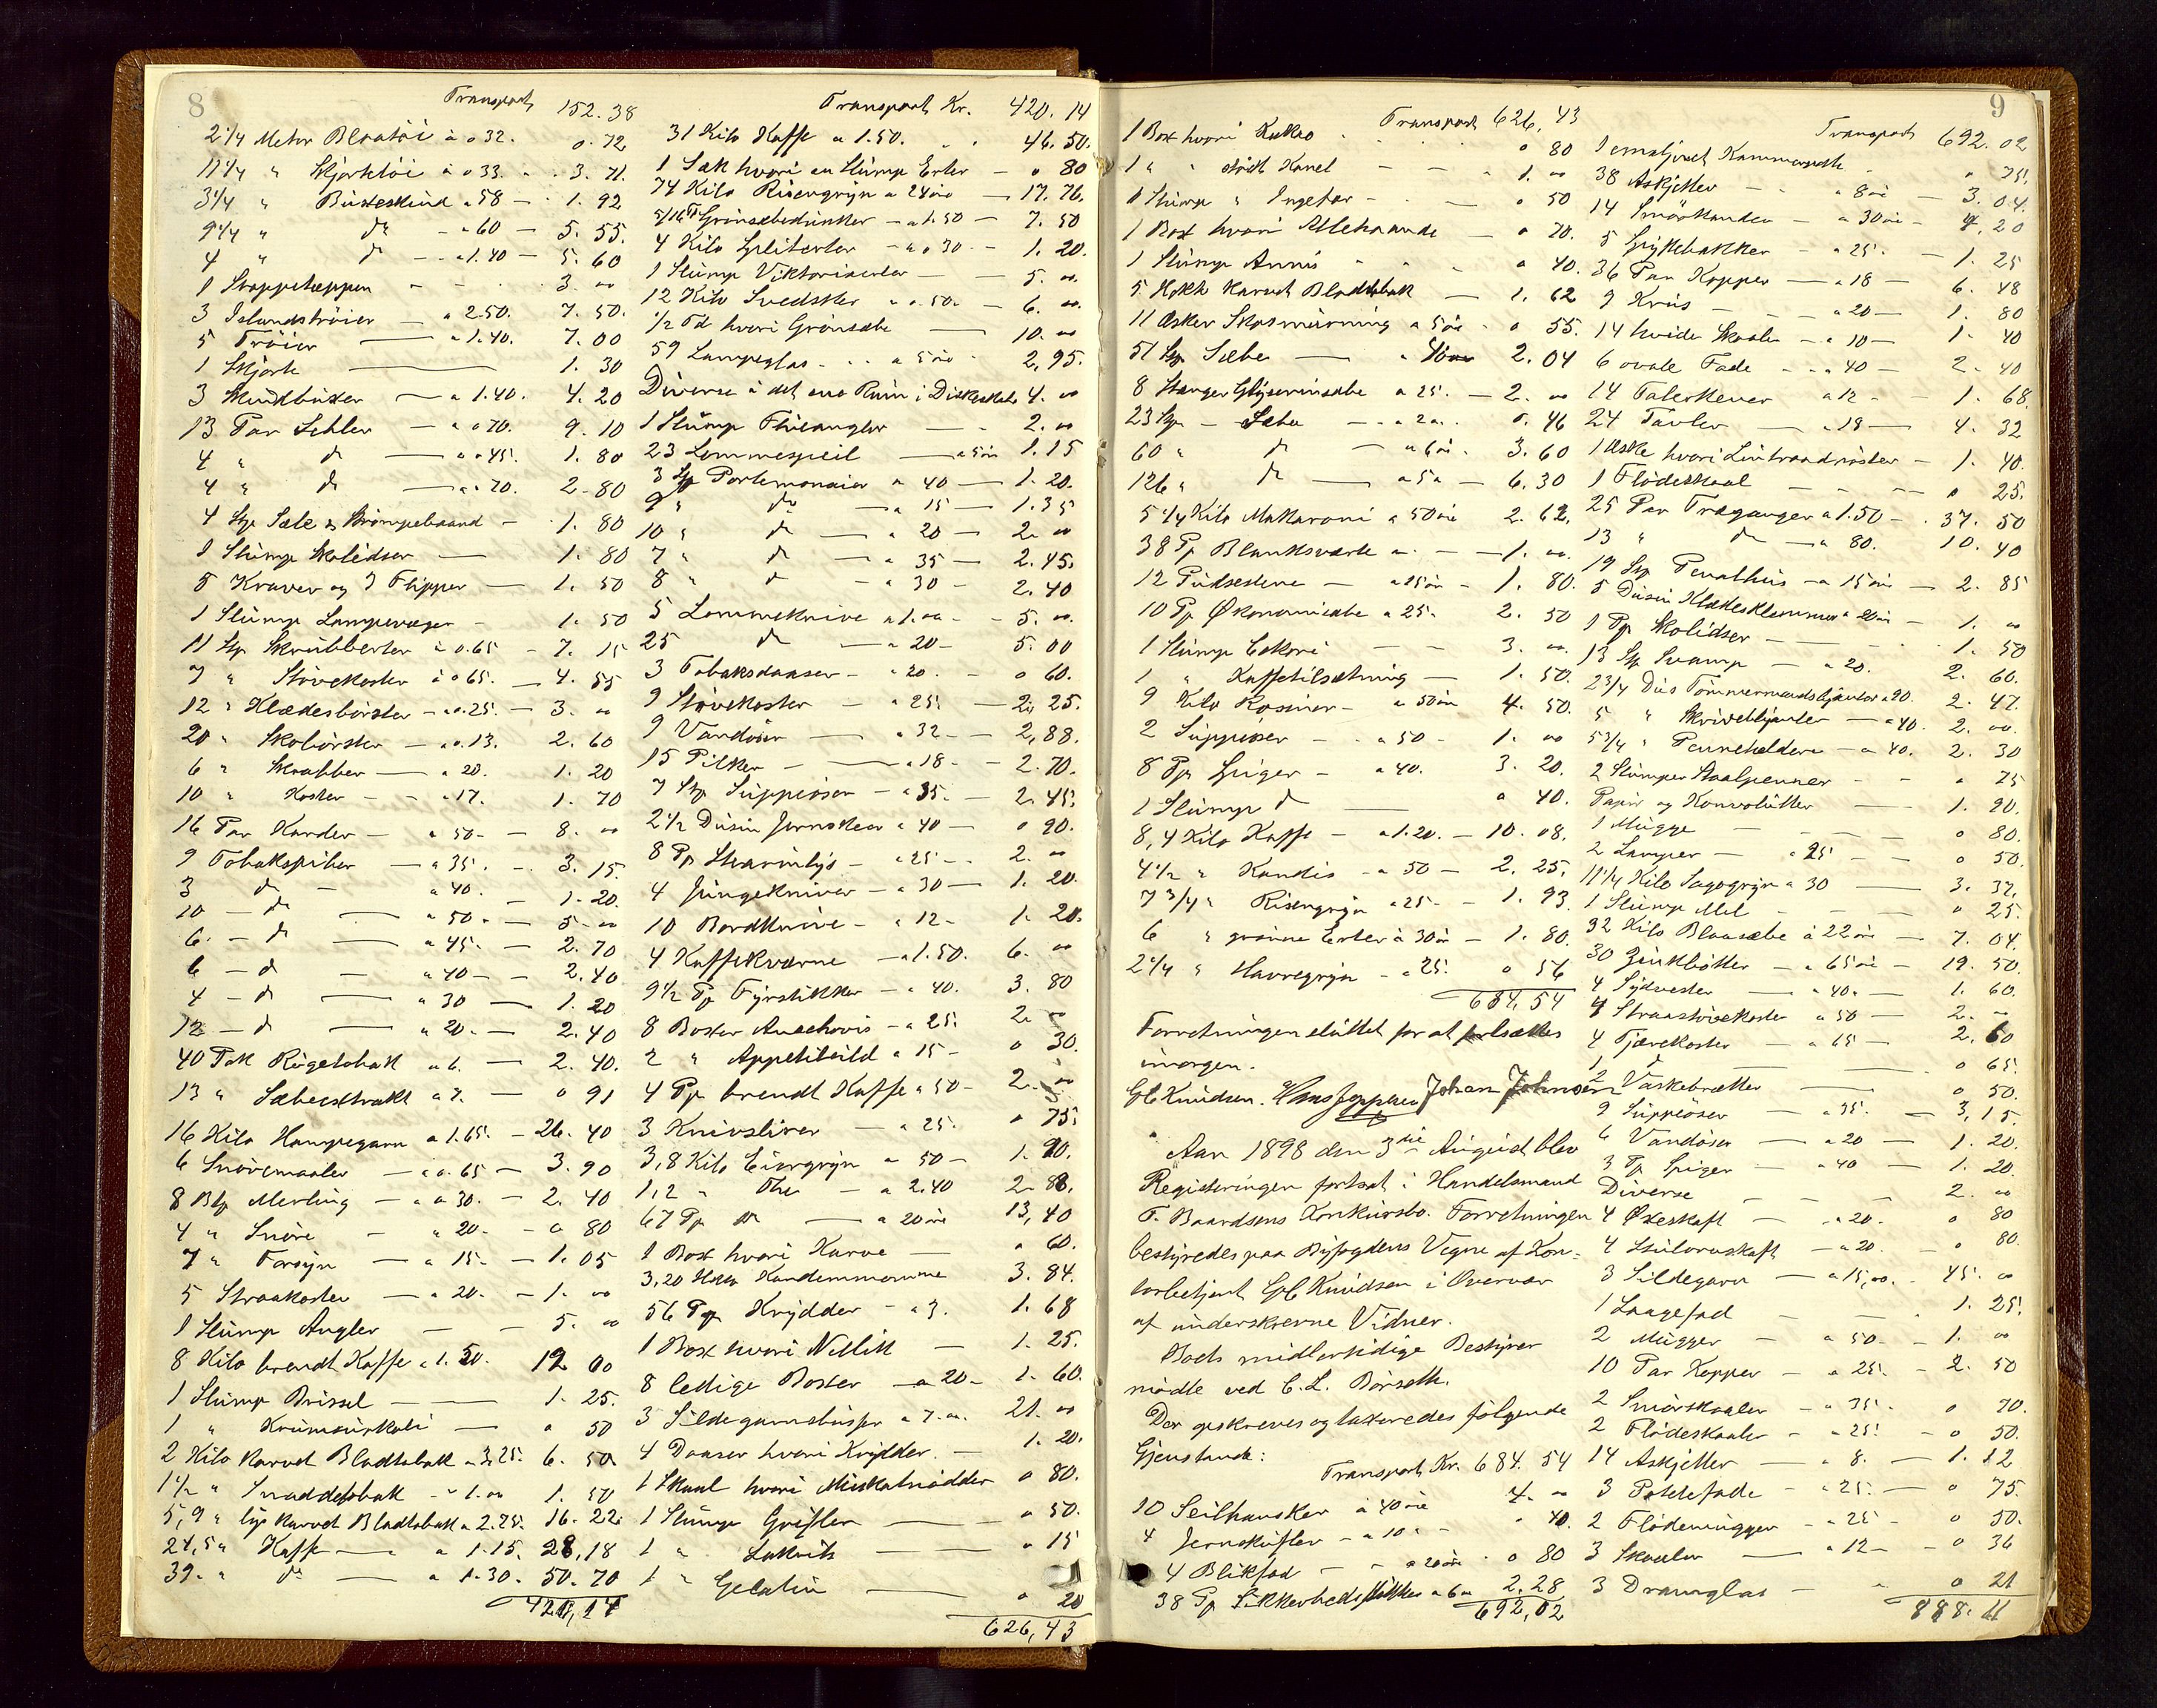 8
Transport 152.38
2 1/4 Meter Blaatøi à o 32. 0.72
11 1/4 " Skjortetøi à o 33. 3.71.
3 1/4 " Buxeskind a 58 1.92
9 1/4 " do a 60 5.55.
4 " do a 1.40 5.60
1 Stoppeteppen 3.oo
3 Islandstrøier a 2.50. 7.50.
5 Trøier a 1.40. 7.00
1 Skjorte 1.30
3 Skindbuxer a 1.40. 4.20
13 Par Sehler a o 70. 9.10
4 " do a o 45. 1.80
4 " do a 70. 2.80
4 Stp Sele & Strømpebaand 1.80
1 Slump Skolidser 1.80
8 Kraver og 3 Flipper 1.50
1 Slump Lampevæger 1.50
11 Stp Skrubberter à 0.65 7.15
7 " Støvekoster à o 65. 4.55
12 " Klædesbørster a o.25. 3.oo
20 " Skobørster a o.13. 2.60
6 " Skrabber a 20. 1.20
10 " Koster a 17. 1.70
16 Par Karder a 50. 8.oo
9 Tobakspiber a 35. 3.15.
3 do a 40. 1.20.
10 do a 50. 5.oo
6. do a 45. 2.70
6 d a 40 2.40
4 d a 30 1.20
12 d a 20. 2.40
40 Pak Røgetobak a 6. 2.40.
13 " Sæbeextrakt a 7. o 91
16 Kilo Hampegarn a 1.65. 26.40
6 Snøremaaler a o.65 3.90
8 Btp Merling a o 30. 2.40
4 " Snøre a 20. o 80
7 " Forsyn a 15. 1.05
5 Straakoster a 20. 1.oo
1 Slump Angler 5.oo
8 Kilo brendt Kaffe a 1.50. 12 00
1 Slump Brissel 1.25.
1 " Krumsurkali o 50
2 Kilo karvet Bladtobak a 3.25. 6.50
1 1/2 " Snaddetobak a 1.oo 1.50
5,9 " lys karvet Bladtobak a 2.75. 16.22.
24,5 " Kaffe a 1.15. 28,18
39. " do a 1.30. 50.70
420,14
Transport Kr. 420.14
31 Kilo Kaffe a 1.50. 46.50.
1 Sæk hvori en Slump Erter o 80
74 Kilo Risengryn a 24 øre 17.76.
5/16 T Grønsæbedunker a 1.50 7.50
4 Kilo Spliterter a o 30. 1.20.
1 Slump Viktoriaerter 5.oo.
12 Kilo Svedsker a o.50. 6.oo.
1/2 Td hvori Grønsæbe 10.oo
59 Lampeglas a 5 øre 2,95.
Diverse i det ene Rum i Diskeskab 4.oo
1 Slump Flueangler 2.oo
23 Lommespeil a 5 øre 1.15
3 Stp Portemonaier a 40 1.20.
9 " do a 15 1.35
10 " do a 20 2.oo
7 " do a 35 2.45.
8 " d a 30 2.40
5 Lommeknive a 1.oo 5.oo.
25 do a 20 5.00
3 Tobaksdaaser a 20. o 60.
9 Støvekoster a 25. 2,25.
9 Vandøser a 32 2,88.
15 Pilker a 18. 2.70.
7 Stp Suppeøser a 35. 2.45.
2 1/2 Dusin Jernskeer a 40 o 90.
8 Pp Stearinlys a 25 2.oo
4 Jungeknive a 30 1.20.
10 Bordknive a 12 1.20.
4 Kaffekværne a 1.50. 6.oo
9 1/2 Pp Fyrstikker a 40. 3.80
8 Boxer Anschovis a 25. 2.oo
2 " Appetitsild a 15 o 30.
4 Pp brendt Kaffe a 50 2.oo
3 Knivslirer a 25. o 75.
3,8 Kilo Eiergryn a 50 1.90.
1,2 " The a 2.40 2.88.
67 Pp do a 20 øre 13,40
1 Box hvori Karve o 60.
3,20 Hekto Kardemomme 3.84.
56 Pp Krydder a 3. 1.68
1 Box hvori Nellik 1.25.
8 ledige Boxer a 20 1.60.
3 Sildegarnsbusser a 7.oo. 21.oo
4 Daaser hvori Krydder. 1.20.
1 Skaal hvori Muskatnødder o 80.
1 Slump Grifler o 50.
1 " Lakrits o 15
1 " Gelatin o 20
626,43
9
Transport 626,43
1 Box hvori Kakao o 80
1 " " stødt Kanel 1.oo
1 Slump " Ingefær o 50
1 Box hvori Allehaande o 70.
1 Slump Annis o 40.
5 Hekt. Karvet Bladtobak 1.62
11 Æsker Skosmurning a 5 øre o 55.
51 Stp Sæbe a 4 øre 2.04
8 Stænger Glyserinsæbe a 25. 2.oo
23 Stp Sæbe a 2 o. o.46
60 " do a 6 ø. 3.60
126 " do a 5 6.30
5 1/4 Kilo Makaroni a 50 øre 2.62,
38 Pp Blanksværte 1.oo
12 Pudsestene a 15 øre 1.80.
10 Pp Økonomisæbe a 25. 2.50
1 Slump Cekori 3.oo.
1 " Kaffetilsætning 1.50.
9 Kilo Rosiner a 50 øre 4.50.
2 Suppeøser a 50 1.oo
8 Pp Spiger a 40. 3.20.
1 Slump do o 40.
8,4 Kilo Kaffe a 1.20. 10.08.
4 1/2 " Kandis a 50 2.25.
7 3/4 " Risengryn a 25 1.93.
6 " grønne Erter à 30 øre 1.80.
2 1/4 " Havregryn a 25. o 56
684,54
Forretningen sluttet for at fortsættes
imorgen.
Gt Knudsen. Hans Jeppesen Johan Johnsen
Aar 1898 den 3die August blev
Registreringen fortsat i Handelsmand
T. Baardsens Konkursbo. Forretningen
bestyredes paa Byfogdens Vegne af Kon-
torbetjent Gt Knudsen i Overvær
af underskrevne Vidner.
Boets midlertidige Bestyrer
mødte ved C. L. Børseth.
Der opskreves og taxeredes følgende
Gjenstande:
Transport Kr. 684.54
10 Seilhansker à 40 øre 4.oo
4 Jernskufler a 10 o 40.
4 Blikfad a 20 øre o 80
38 Pp Sikkerhedsstikker a 6 2.28
692,02
Transport 692.02
1 emaljeret Kammerpotte o 75.
38 Askjetter a 8 øre 3.04.
14 Smørkander a 30 øre 4,20
5 Spyttebakker a 25. 1.25
36 Par Kopper a 18 6.48
9 Krus a 20 1.80
14 hvide Skaaler a 10 1.40
6 ovale Fade a 40 2.40
14 Talerkener a 12 1.68.
24 Tavler a 18 4.32
1 Æske hvori Lintraadnøster 1.40.
1 Flødeskaal o 25.
25 Par Træganger a 1.50 37.50
13 " do a 80. 10.40
19 Stp Penalhus a 15 øre 2.85
5 Dusin Klædesklemmer a 20 øre 1.oo
1 Pp Skolidser 1.50
13 Stp Svamp a 20. 2.60.
2 3/4 Dus Tømmermandsblyanter a 90. 2.47.
5 " Skriveblyanter a 40. 2.oo.
5 3/4 " Penneholdere a 40. 2.30
2 Slumper Staalpenner o 75
Papir og Konvolutter 1.20.
1 Mugge o 80.
2 Lamper a 25 o 50.
11 1/4 Kilo Sagogryn a 30 3.37.
1 Slump Mel o 25.
32 Kilo Blaasæbe à 22 øre 7.04.
30 Zinkbøtter a 65 øre 19.50.
4 Sydvester a 40. 1.60.
4 Straastøvekoster a 50 2.oo
4 Tjærekoster a 65 2.60
1 d o 65.
2 Vaskebrætter o 50.
9 Suppeøser a 35. 3,15.
6 Vandøser a 20 1.20.
3 Pp Spiger a 40 1.20.
Diverse 2.oo
4 Øxeskaft a 20. o 80
4 Skulorvskaft a 20 o 80.
3 Sildegarn a 15,oo. 45.oo
1 Laagefad 1.25.
2 Mugger a 50 1.oo
10 Par Kopper a 25. 2.50
2 Smørskaaler a 35. o 70.
2 Flødeskaaler a 25. o 50.
14 Askjetter a 8. 1.12
3 Pottefade a 25. o 75.
2 Flødemugger a 25 o 50.
3 Skaaler a 12 o 36
3 Dramglas o 21
888.11